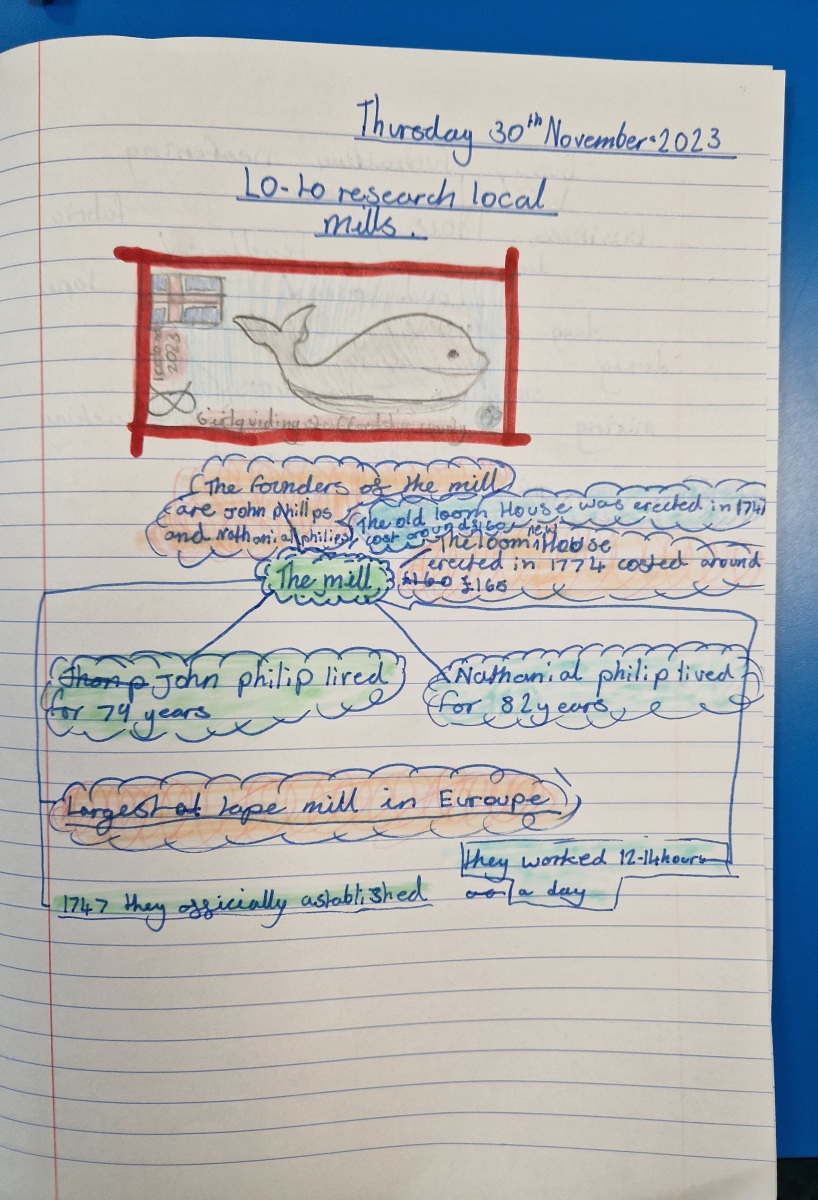 Thursday 30th November 2023
LO-to research local
mills.
iceland
2023
Girlguiding Staffordshire county
The founders of the mill
are John phillps
and Nathanial philips
The old loom House was erected in 1747
cost around £160
new
The loom House
erected in 1774 costed around
£160 £165
The mill
John philip lived
for 74 years
Nathanial philip lived
for 82 years
Largest at tape mill in Euroupe
they worked 12-14 hours
a day
1747 they officially astablished